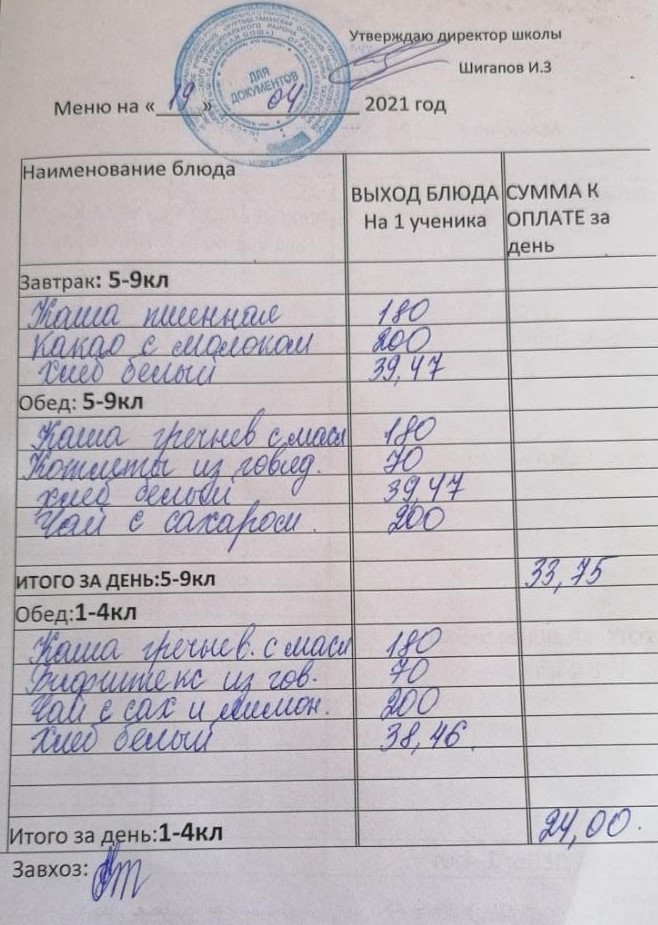 Утверждаю директор школы
Шигапов И.З
ДЛЯ ДОКУМЕНТОВ
Меню на «19» 04 2021 год
Наименование блюда ВЫХОД БЛЮДА На 1 ученика СУММА К ОПЛАТЕ за день
Завтрак: 5-9кл
Каша пшенная 180
Какао с молоком 200
Хлеб белый 39,47
Обед: 5-9кл
Каша гречнев с масл 180
Котлеты из говяд. 70
Хлеб белый 39,47
Чай с сахаром. 200
ИТОГО ЗА ДЕНЬ:5-9кл 33,75
Обед:1-4кл
Каша гречнев. с масл 180
Бифштекс из гов. 70
Чай с сах и лимон. 200
Хлеб белый 38,46.
Итого за день:1-4кл 24,00.
Завхоз: